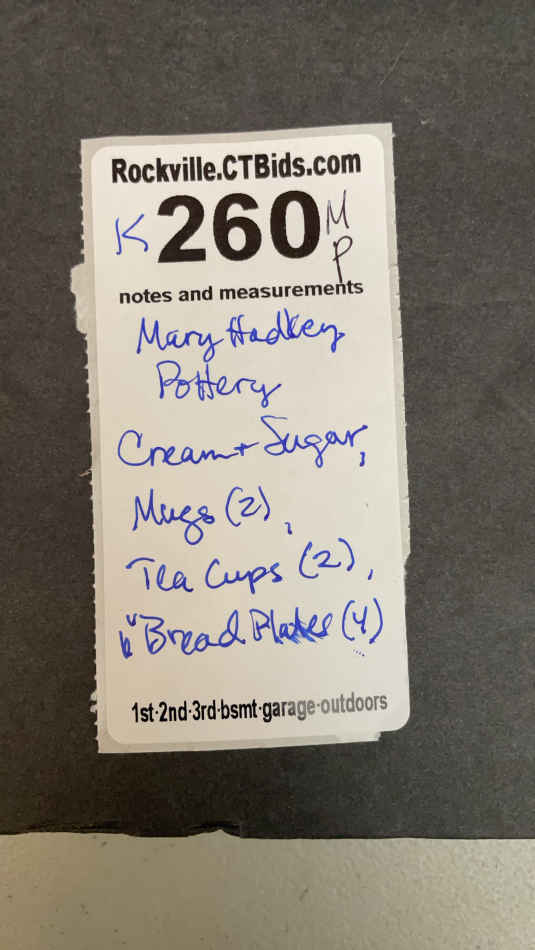 Rockville.CTBids.com
K 260 M
P
notes and measurements
Mary Hadley
Pottery
Cream + Sugar,
Mugs (2),
Tea Cups (2),
6" Bread Plates (4)
1st·2nd·3rd·bsmt·garage·outdoors